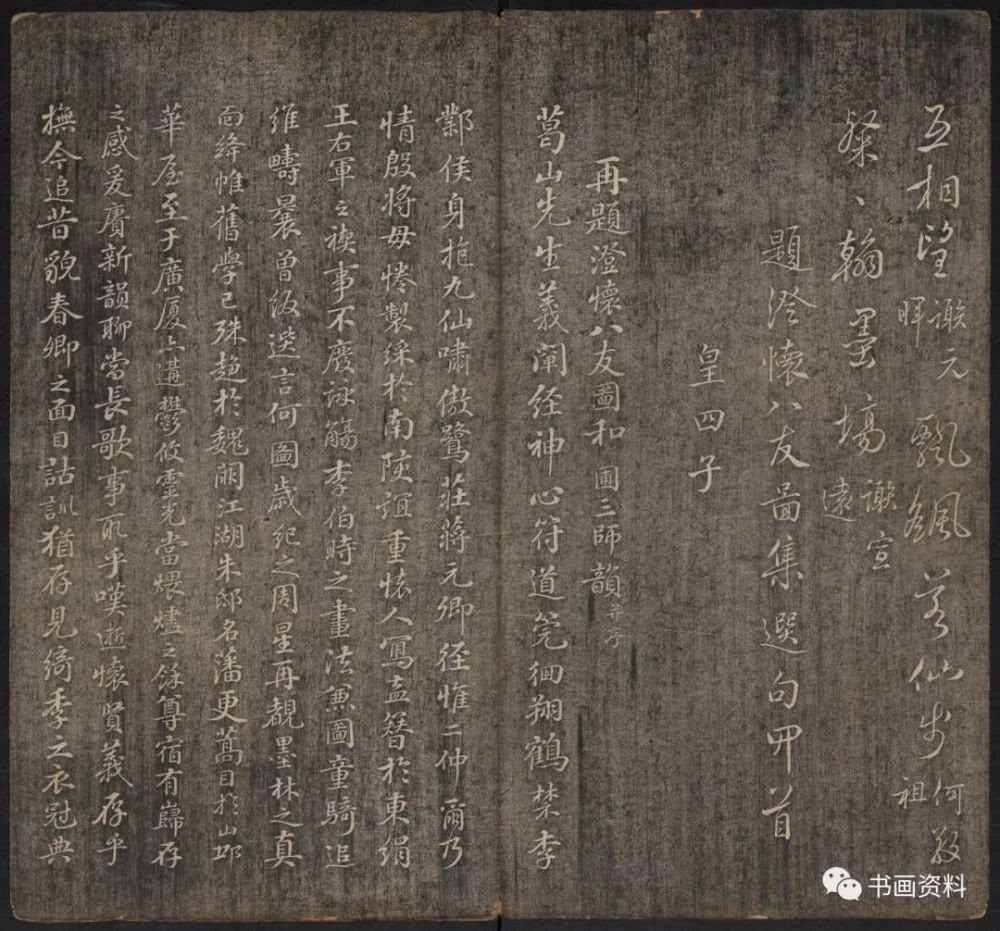 互相望謝元暉飄飖若仙步何敬祖
粲〻翰墨場謝宣遠
題澄懷八友圖集選句四首
皇四子
再題澄懷八友圖和圃三師韻并序
葛山先生義闡經神心符道筦徊翔鶴禁李
鄴侯身拖九仙嘯傲鷺莊蔣元卿徑惟二仲爾乃
情殷將母惓製綵於南陔誼重懷人寫盍簪於東絹
王右軍之禊事不廢詠觴李伯時之畫法兼圖童騎追
維疇曩曾綴選言何圖歲紀之周星再覩墨林之真
而絳帷舊學已殊趨於魏闕江湖朱邸名藩更蒿目於山邱
華屋至于廣廈上遘鬱攸靈光當煨燼之餘尊宿有巋存
之感爰賡新韻聊當長歌事取乎嘆逝懷賢義存乎
撫今追昔貌春卿之面目詁訓猶存見綺季之衣冠典
书画资料